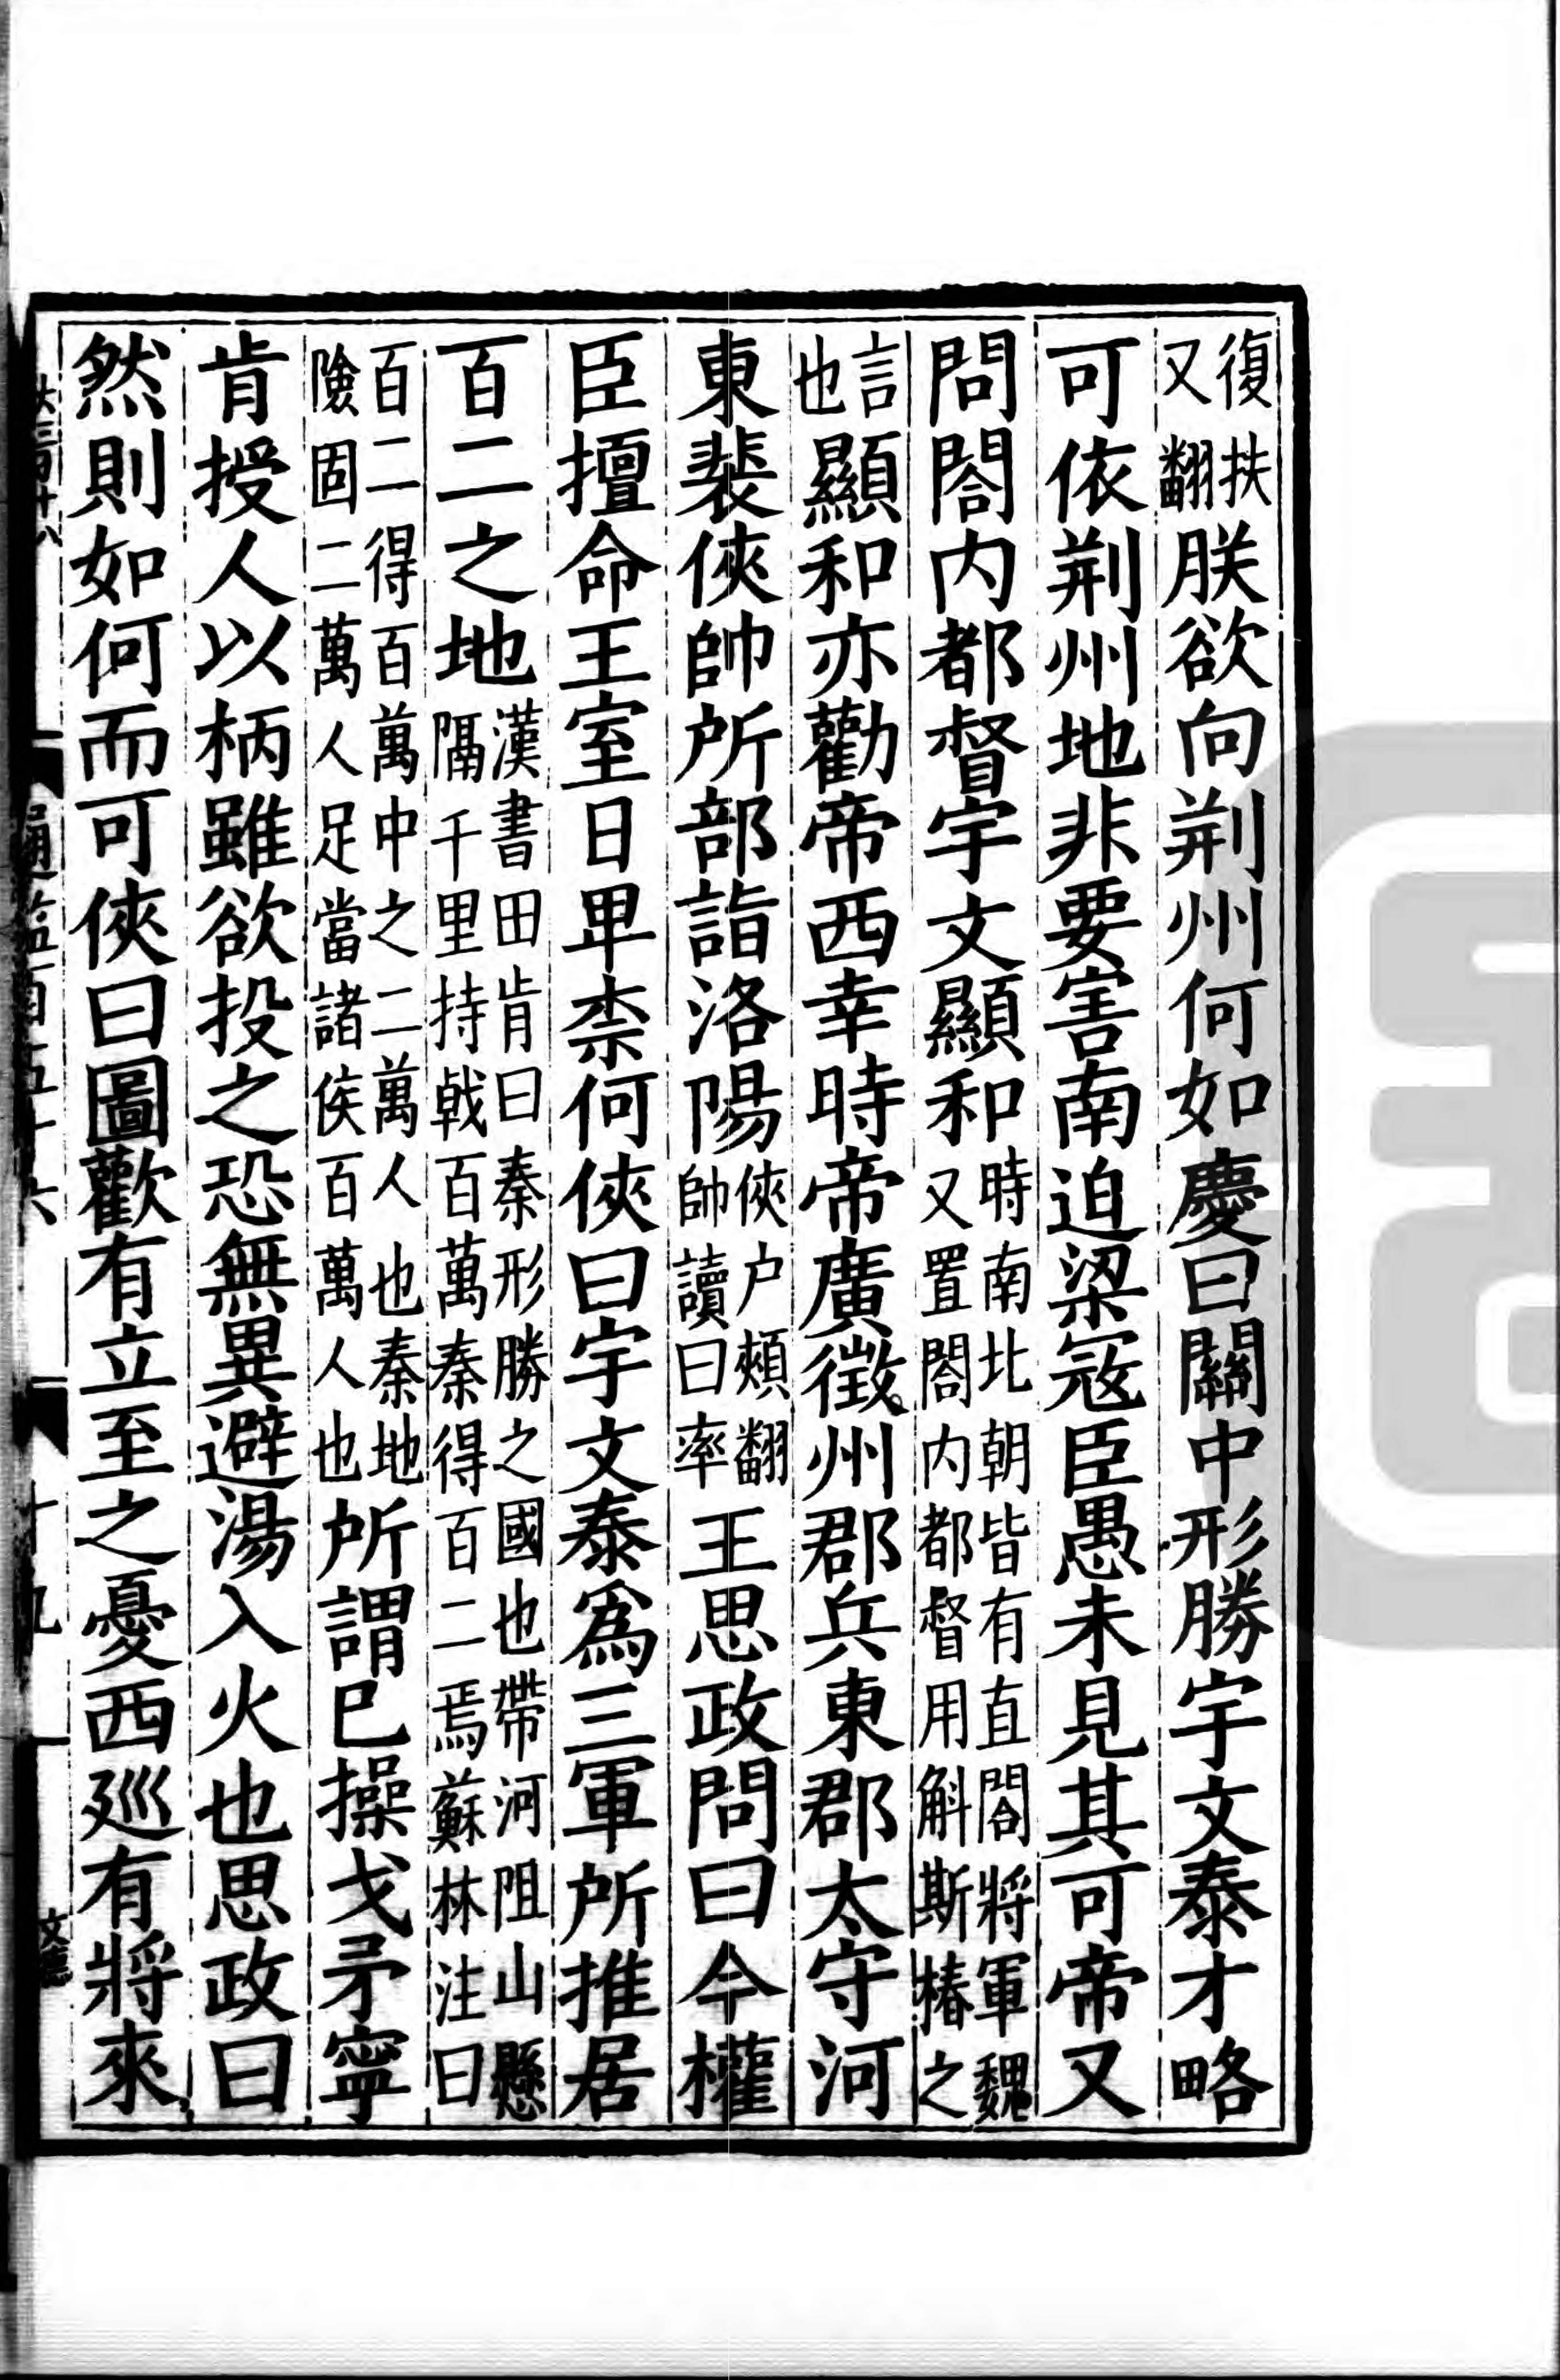 復扶又翻朕欲向荆州何如慶曰關中形勝宇文泰才略
可依荆州地非要害南迫梁寇臣愚未見其可帝又
問閤内都督宇文顯和時南北朝皆有直閤將軍魏又置閤内都督用斛斯椿之
言也顯和亦勸帝西幸時帝廣徵州郡兵東郡太守河
東裴俠帥所部詣洛陽俠户頰翻帥讀曰率王思政問曰今權
臣擅命王室日卑柰何俠曰宇文泰爲三軍所推居
百二之地漢書田肯曰秦形勝之國也帶河阻山懸隔千里持戟百萬秦得百二焉蘇林注曰
百二得百萬中之二萬人也秦地險固二萬人足當諸侯百萬人也所謂已操戈矛寧
肯授人以柄雖欲投之恐無異避湯入火也思政曰
然則如何而可俠曰圖歡有立至之憂西廵有將來
通鑑百五十六
十九